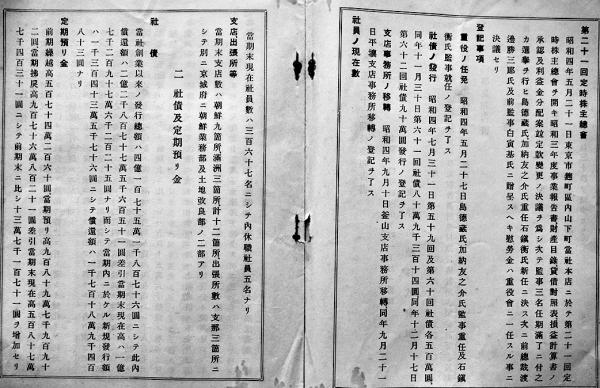 第二十一回定時株主總會
昭和四年五月二十一日東京市麴町區內山下町當社本店ニ於テ第二十一回定
時株主總會ヲ開キ昭和三年度事業報告書財產目錄貸借對照表損益計算書ノ
承認及利益金分配案竝定款變更ノ決議ヲ爲シ次テ監事三名任期滿了ニ付之
カ選擧ヲ行ヒ島德藏氏加納友之介氏重任石鎭衡氏新任ニ決ス次ニ前總裁渡
邊勝三郎氏及前監事白寅基氏ニ贈呈スヘキ慰勞金ハ重役會ニ一任スル事ニ
決議セリ
登記事項
重役ノ任免 昭和四年五月二十七日島德藏氏加納友之介氏監事重任及石鎭
衡氏監事就任ノ登記ヲ了ス
社債ノ發行 昭和四年七月三十一日第五十九回及第六十回社債各五百萬圓
同年十一月三十日第六十一回社債八十萬九千三百十四圓同年十二月十七日
第六十二回社債九十萬圓發行ノ登記ヲ了ス
支店事務所ノ移轉 昭和四年九月十日釜山支店事務所移轉同年九月二十一
日平壤支店事務所移轉ノ登記ヲ了ス
社員ノ現在數
當期末現在社員數ハ三百六十七名ニシテ內休職社員五名ナリ
支店出張所等
當期末支店數ハ朝鮮九箇所滿洲三箇所計十二箇所出張所數ハ支那三箇所ニ
シテ別ニ京城府ニ朝鮮業務部及土地改良部ノ二部アリ
二 社債及定期預リ金
社債
當社創業以來ノ發行總額ハ四億一百七十五萬一千八百七十六圓ニシテ此內
償還額ハ二億二千八百七十七萬五千六百五十一圓差引當期末現在高ハ一億
七千二百九十七萬六千二百二十五圓ナリ而シテ當期內ニ於ケル新規發行額
ハ一千三百四十三萬五千七十六圓ニシテ償還額ハ一千七百十八萬九千四百
八十三圓ナリ
定期預リ金
前期繰越高五百七十四萬二百六十圓當期預リ高九百八十九萬七千九百九十
二圓當期拂戾高九百七十六萬八百二十一圓差引當期末現在高五百八十七萬
七千四百三十一圓ニシテ前期末ニ比シ十三萬七千一百七十一圓ヲ增加セリ